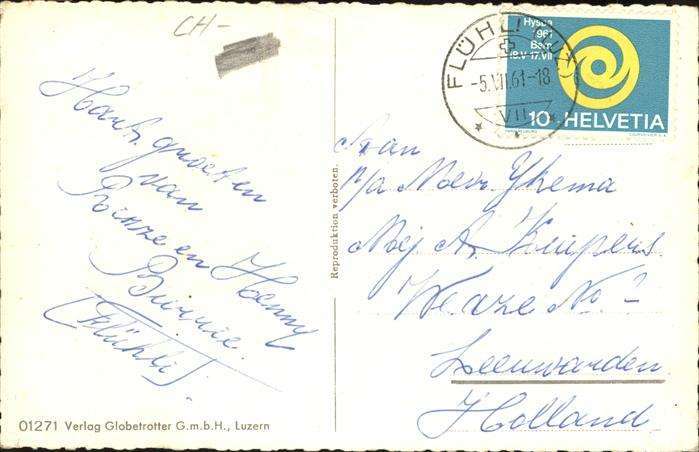 CH-
Hyspa
1961
Bern
18.V-17.VII
10 HELVETIA
FLÜHLI
-5.VII.61-18
VII
Hart. groeten
van
Rinze en Henny
(Flühli).
Reproduktion verboten.
Aan
p/a Mevr. Ykema
Mej A. Kuipers
Weaze No
Leeuwarden
Holland
01271 Verlag Globetrotter G.m.b.H., Luzern